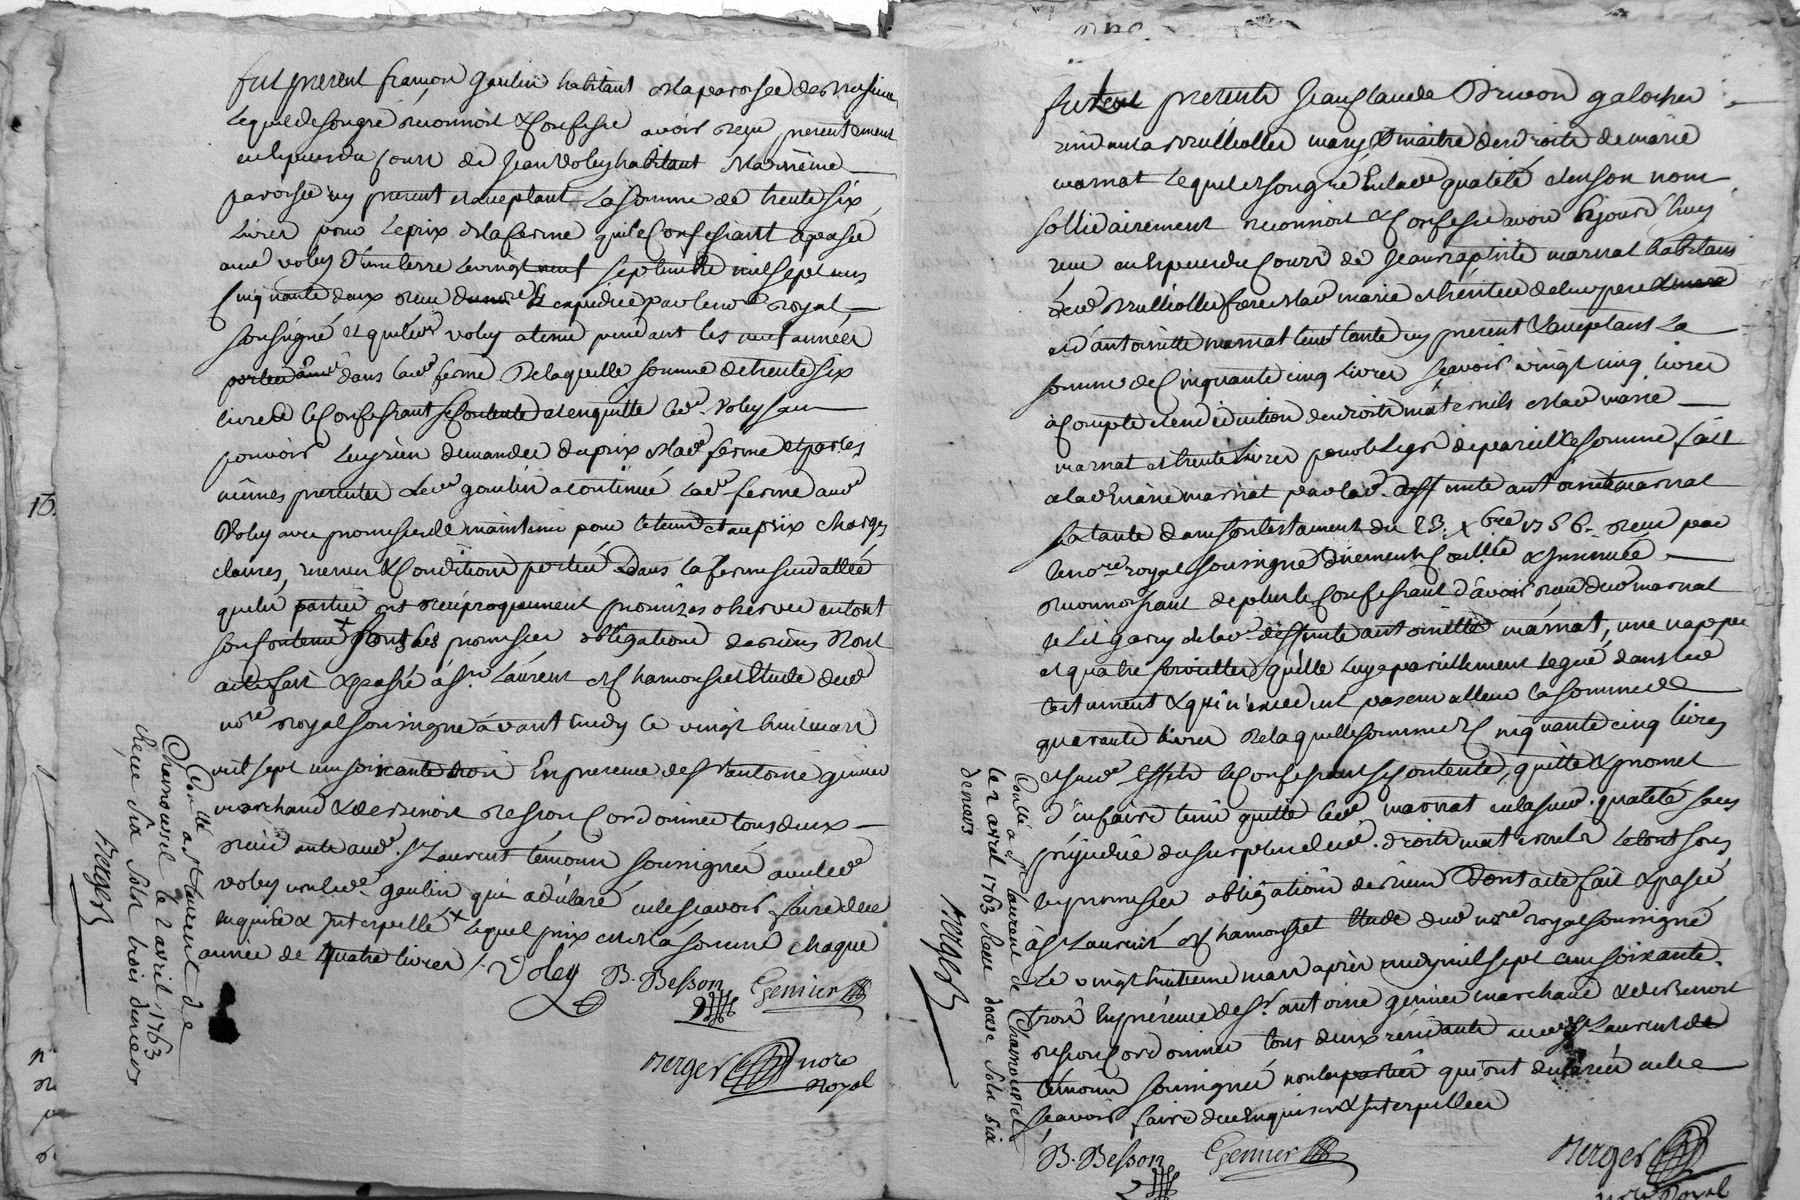 fut present françois Goulin habitant de la paroisse de
Lequel de son gré reconnoit & confesse avoir reçu presentement
en espece du cours de Jean Voley habitant de la même
paroisse icy present et aceptant la somme de trente six
Livres pour le prix de la ferme que le Confessant a passé
aud voley d'une terre le vingt neuf septembre mil sept cens
Cinquante deux reçue & expediée par le no.re royal
soussigné et que led voley a tenu pendant les neuf années
portées dans lad ferme de laquelle somme de trente six
livres le Confessant se contente et en quitte led. Voley sans
pouvoir luy rien demander du prix de lad ferme et par les
mêmes presentes led goulin a continué lad ferme aud
Voley avec promesse de maintenir pour le tems et au prix charges
clauses, & Conditions portées dans la ferme sus datée
que les parties ont reciproquement promises observer en tout
son contenu sous les promesses obligations de biens Dont
acte fait & passé à St. Laurent de Chamousset Etude dud
no.re royal soussigné avant midy le vingt huit mars
mil sept cens soixante trois En presence de Sr antoine genier
marchand & de Benoit Besson Cordonnier tous deux
aud. St Laurent témoins soussignés avec led
voley non led. goulin qui a déclaré ne le scavoir faire de ce
enquis & Interpellé + lequel prix est de la somme chaque
année de quatre livres /. Voley B. Besson Genier
Berger nore
Royal
Controllé a St laurent de
Chamousset le 2 avril 1763
Reçue six sols trois deniers
Berger
fut present Jean Claude Brivon galocher
residant a Brullioles mary & maitre des droits de marie
marnat Lequel de son gré En lad qualité et en son nom
sollidairement reconnoit & Confesse avoir
reçu en espece du Cours de Jean baptiste marnat habitant
dud Brullioles frere de lad marie et héritier de leur pere
et d'antoinette marnat leur tante icy present & aceptant La
somme de Cinquante cinq livres scavoir vingt cinq livres
à Compte et en déduction des droits maternels de lad marie
marnat et trente livres pour le legs de pareille somme fait
a lad marie marnat par lad. deffunte antoinette marnat
sa tante dans son testament du 23. xbre 1756. reçu par
le no.re royal soussigné duement Controllé & Insinué
reconnoissant de plus le Confessant d'avoir reçu dud marnat
le Lit garny de lad. deffunte antoinette marnat, une nappe
et quatre serviettes qu'elle luy a pareillement legué dans led
testament & qui n'excedent pas en valleur la somme de
quarante livres de laquelle somme de Cinquante cinq livres
et susd. Effets le Confessant se contente, quitte & promet
d'en faire tenir quitte led marnat en la susd. qualité sans
préjudice du surplus desd. droits maternels le tout sous
les promesses obligations de biens Dont acte fait & passé
à St Laurent de Chamousset Etude dud no.re royal soussigné
Le vingt huitieme mars après midy mil sept cens soixante
trois En présence de Sr. antoine genier marchand & de Benoit
Besson Cordonnier tous deux residants aud St Laurent
témoins soussignés non les parties qui ont declaré ne le
scavoir faire de ce Enquises & Interpellées
B. Besson Genier Berger
nore Royal
Controllé a St laurent de Chamousset
le 2 avril 1763 Reçue douze sols six
deniers
Berger